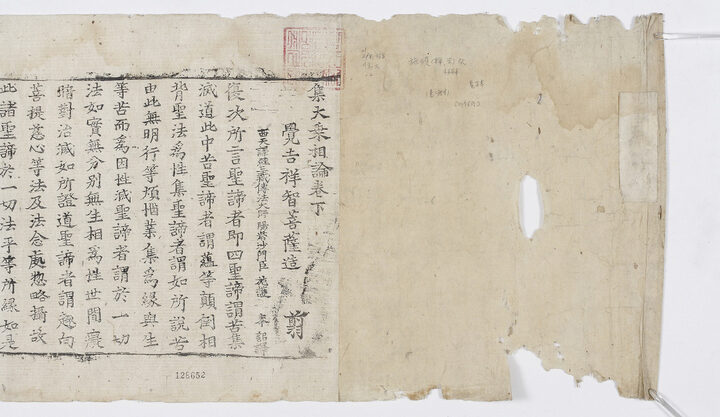 集大乗相論卷下
覺吉祥智菩薩造 翦
西天譯經三藏傳法大師賜紫沙門臣 施護 奉 詔譯
復次所言聖諦者即四聖諦謂苦集
滅道此中苦聖諦者謂蘊等顛倒相
背聖法爲性集聖諦者謂如所說苦
由此無明行等煩惱業集爲緣與生
等苦而爲因性滅聖諦者謂於一切
法如實無分別無生相爲性世間癡
暗對治滅如所證道聖諦者謂趣向
菩提慈心等法及法念處惣略攝故
此諸聖諦於一切法平等所緣如是
128652